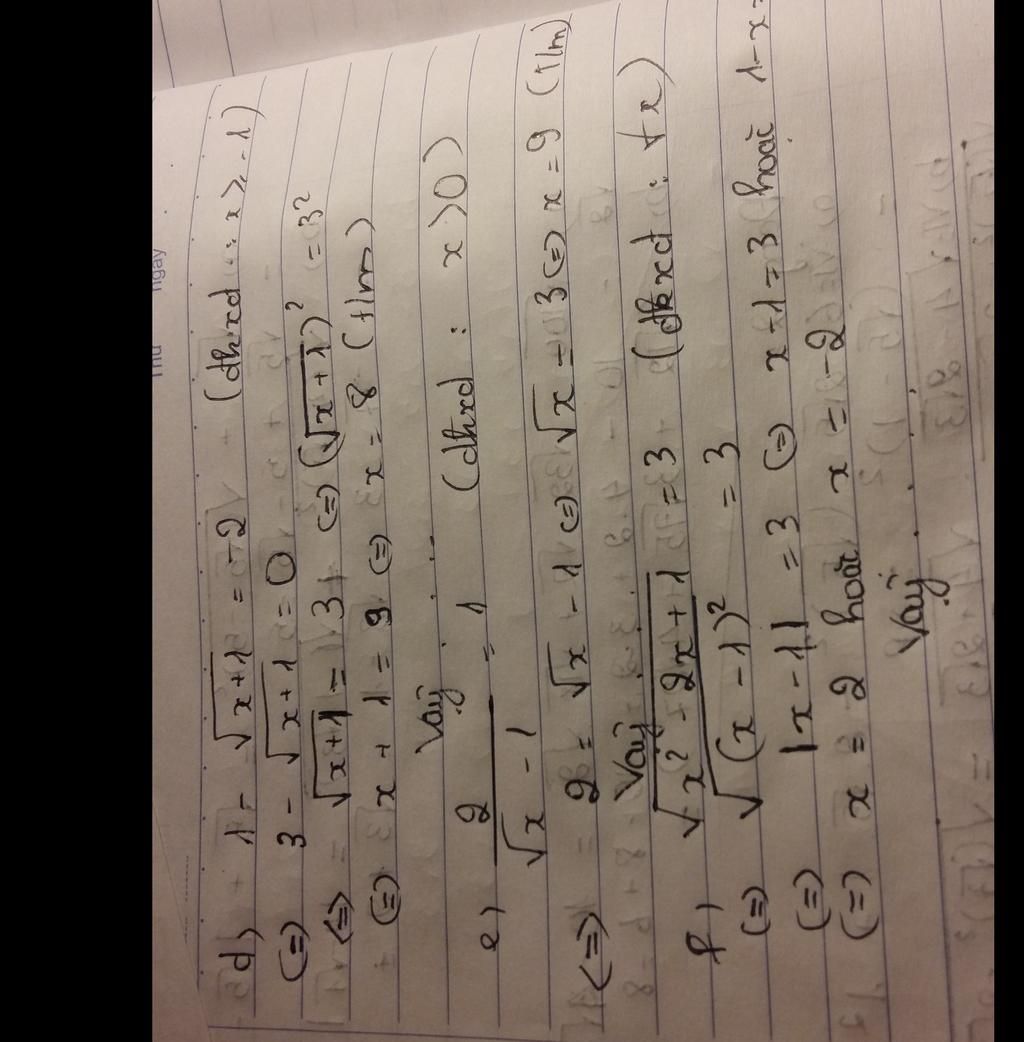 Thứ
ngày
d) 1 - √(x+1) = -2 (đkxđ: x ≥ -1)
(=) 3 - √(x+1) = 0
(=) √(x+1) = 3 (=) (√(x+1))² = 3²
(=) x + 1 = 9 (=) x = 8 (tlm)
Vậy ...
e) 2/(√x - 1) = 1 (đkxđ: x > 0)
<=> 2 = √x - 1 (=) √x = 3 (=) x = 9 (tlm)
Vậy
f) √(x² - 2x + 1) = 3 (đkxđ: ∀x)
(=) √((x - 1)²) = 3
(=) |x - 1| = 3 (=) x - 1 = 3 hoặc 1 - x =
(=) x = 2 hoặc x = -2
Vậy ...